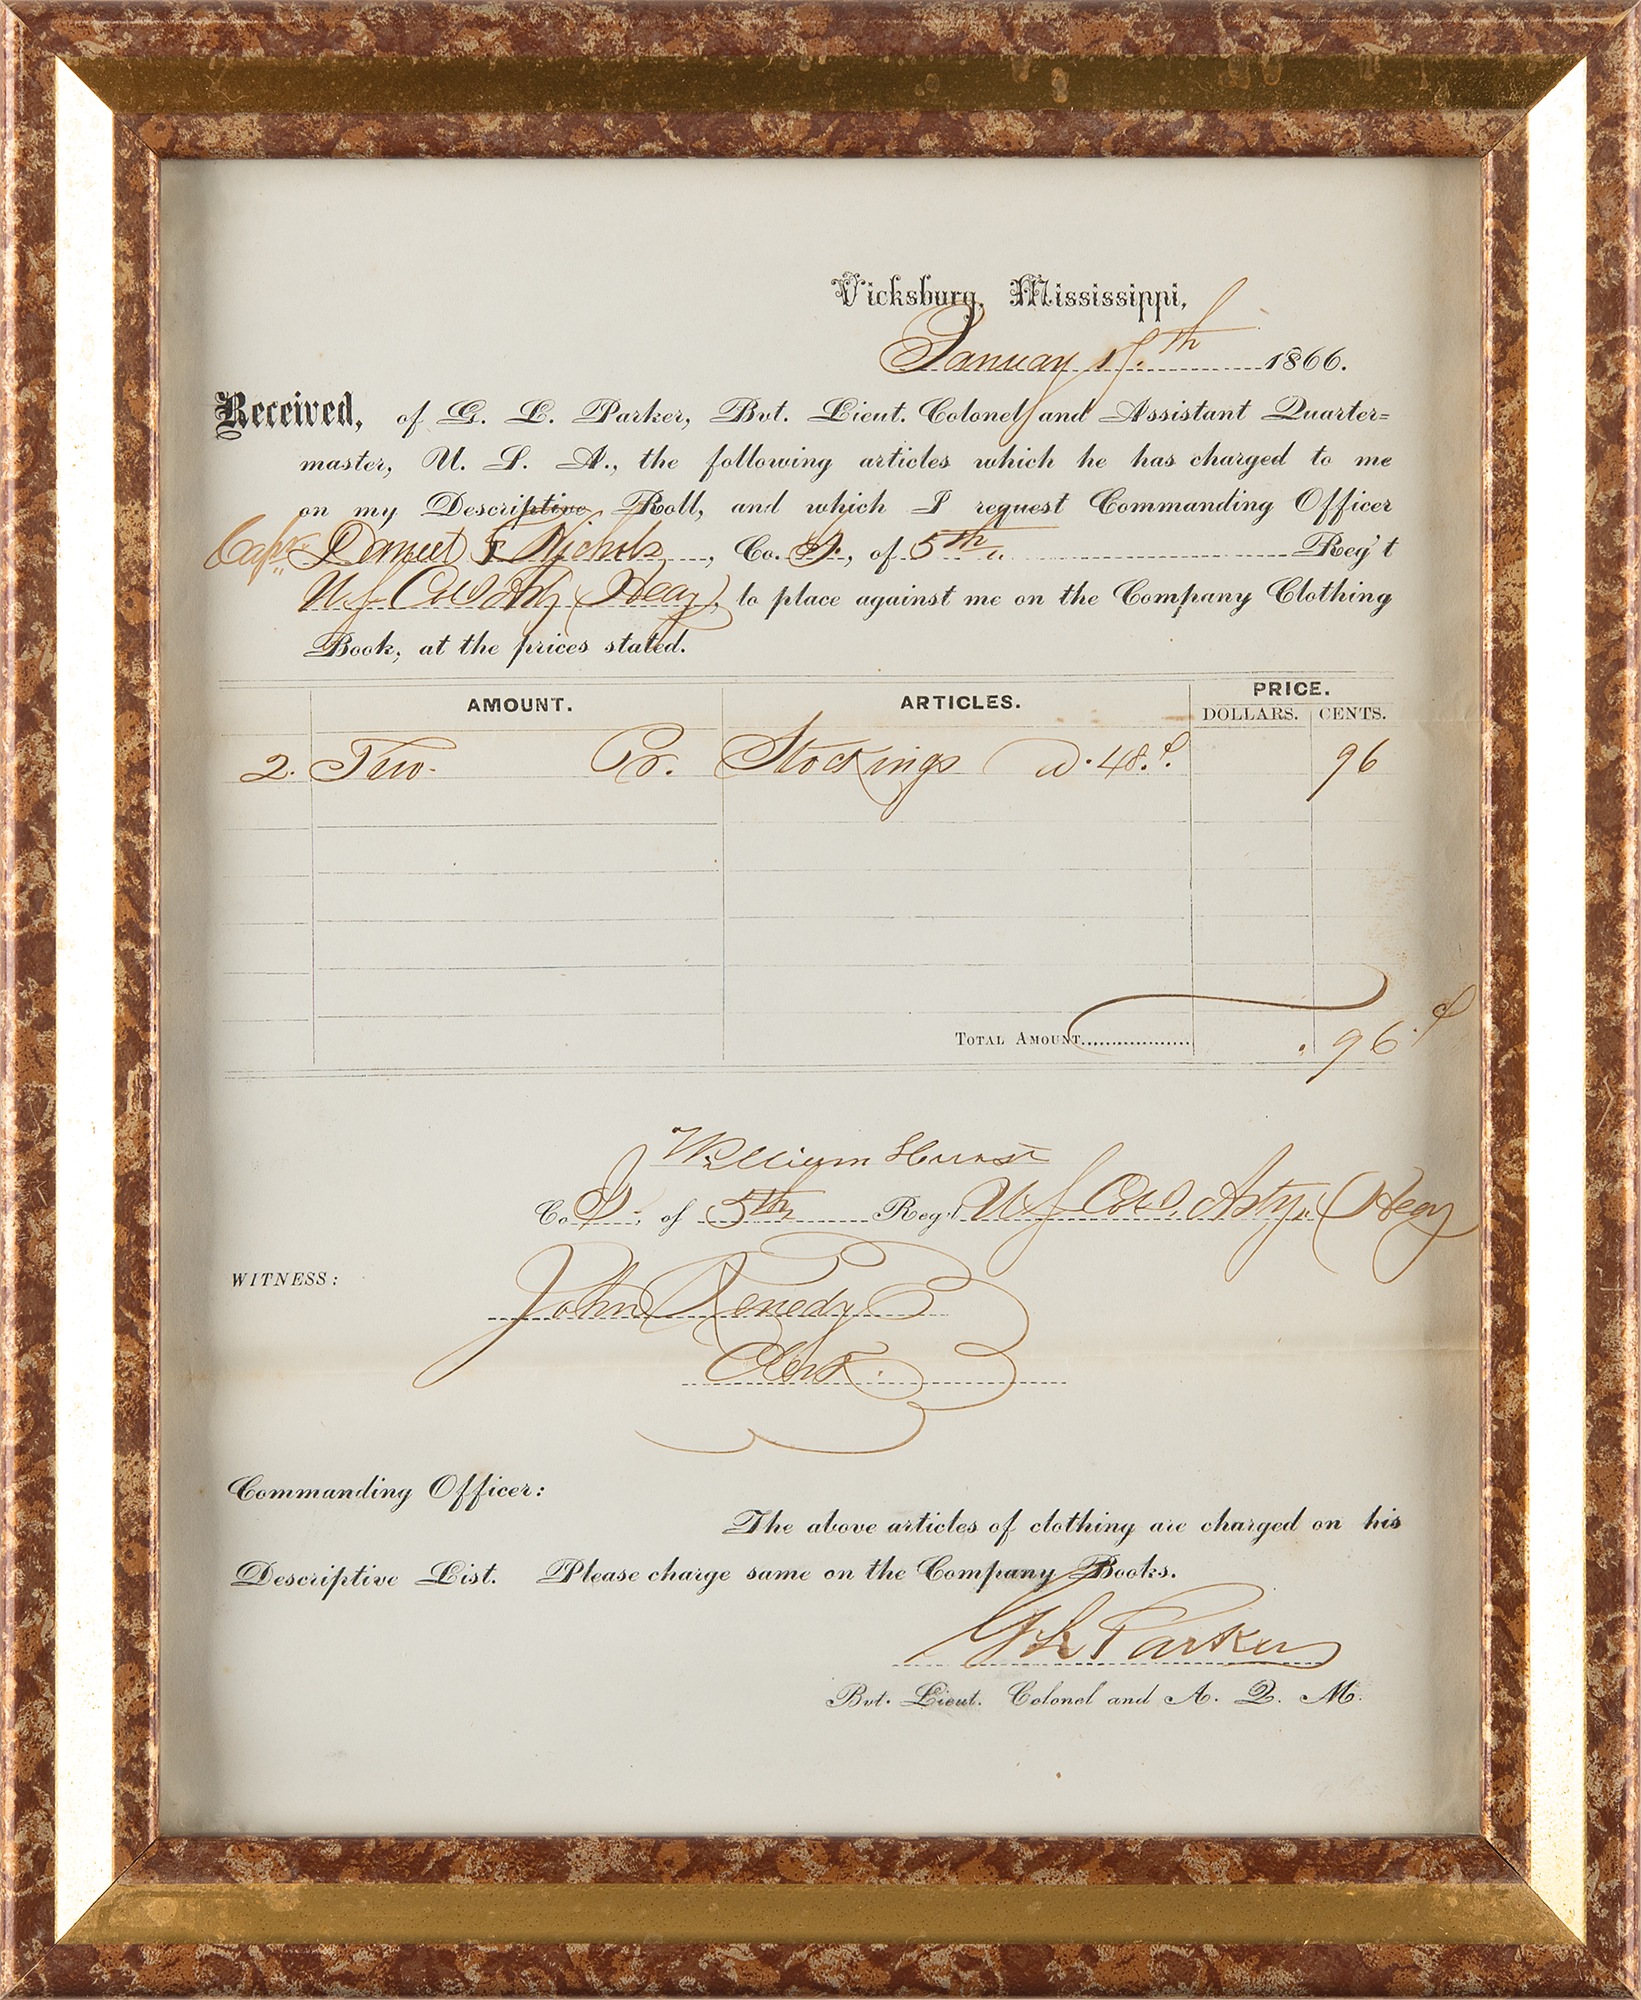 Vicksburg, Mississippi,
January 17th 1866.
Received, of G. L. Parker, Bvt. Lieut. Colonel and Assistant Quarter=
master, U. S. A., the following articles which he has charged to me
on my Descriptive Roll, and which I request Commanding Officer
Capt Daniel F Nichols, Co. , of 5th Reg't
U S Cold Arty (Heavy), to place against me on the Company Clothing
Book, at the prices stated.
AMOUNT. ARTICLES. PRICE.
DOLLARS. CENTS.
2. Two Pr. Stockings @ .48.¢. 96
TOTAL AMOUNT.................. .96.¢
William Hurst
Co. , of 5th Reg't U S Cold. Arty. (Heavy
WITNESS:
John Kenedy
Clerk.
Commanding Officer:
The above articles of clothing are charged on his
Descriptive List. Please charge same on the Company Books.
G L Parker
Bvt. Lieut. Colonel and A. Q. M.